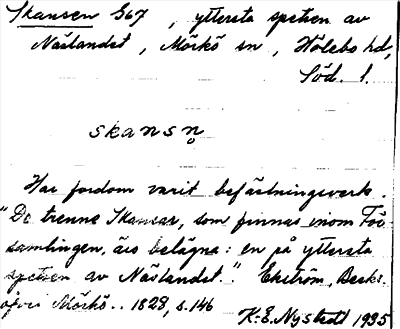 Skansen G67, yttersta spetsen av
Näslandet, Mörkö sn, Hölebo hd,
Söd. l.
skansn̥
Har fordom varit befästningsverk.
"De trenne Skansar, som finnas inom För-
samlingen, äro belägna: en på yttersta
spetsen av Näslandet." Ekström, Beskr.
öfver Mörkö.. 1828, s. 146
K.E. Nystedt 1935